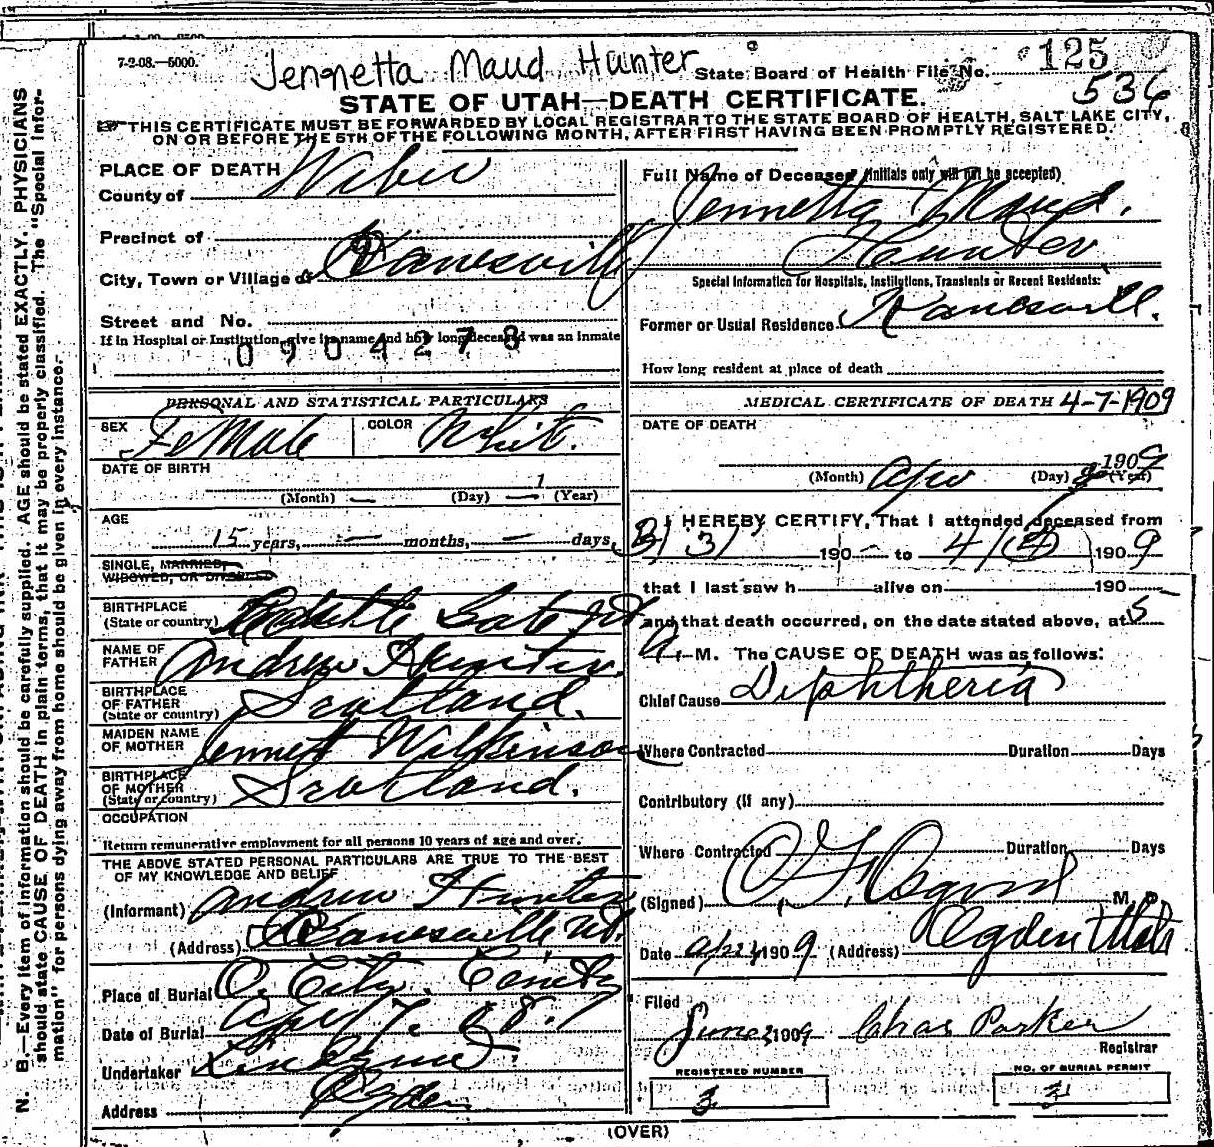 7-2-08.—5000.
Jennetta Maud Hunter
State Board of Health File No. 125
536
STATE OF UTAH—DEATH CERTIFICATE.
THIS CERTIFICATE MUST BE FORWARDED BY LOCAL REGISTRAR TO THE STATE BOARD OF HEALTH, SALT LAKE CITY,
ON OR BEFORE THE 5TH OF THE FOLLOWING MONTH, AFTER FIRST HAVING BEEN PROMPTLY REGISTERED.
PLACE OF DEATH
County of Weber
Precinct of
City, Town or Village of Kanesville
Street and No.
If in Hospital or Institution, give its name and how long deceased was an inmate
0904278
PERSONAL AND STATISTICAL PARTICULARS
SEX Female COLOR White.
DATE OF BIRTH
1
(Month) — (Day) — (Year)
AGE
15 years, — months, — days
SINGLE, MARRIED,
WIDOWED, OR DIVORCED
BIRTHPLACE
(State or country)
NAME OF
FATHER Andrew Hunter.
BIRTHPLACE
OF FATHER
(State or country) Scotland.
MAIDEN NAME
OF MOTHER Jennett Wilkinson
BIRTHPLACE
OF MOTHER
(State or country) Scotland.
OCCUPATION
Return remunerative employment for all persons 10 years of age and over.
THE ABOVE STATED PERSONAL PARTICULARS ARE TRUE TO THE BEST
OF MY KNOWLEDGE AND BELIEF
(Informant) Andrew Hunter
(Address) Kanesville Ut.
Place of Burial O. City. Cemety
Date of Burial Apr 7.
Undertaker
Address Ogden
Full Name of Deceased (Initials only will not be accepted)
Jennetta Maud.
Hunter
Special Information for Hospitals, Institutions, Transients or Recent Residents:
Former or Usual Residence Kanesvill.
How long resident at place of death
MEDICAL CERTIFICATE OF DEATH 4-7-1909
DATE OF DEATH
1909
(Month) Apr (Day) (Year)
I HEREBY CERTIFY, That I attended deceased from
3/31 190— to 4/ 1909
that I last saw h alive on 190
and that death occurred, on the date stated above, at 5
A.—M. The CAUSE OF DEATH was as follows:
Chief Cause Diphtheria
Where Contracted Duration Days
Contributory (if any)
Where Contracted Duration Days
(Signed) M. D.
Date 1909 (Address) Ogden Utah
Filed
June 1909 Chas Parker
Registrar
REGISTERED NUMBER
3
NO. OF BURIAL PERMIT
3
(OVER)
N. B.—Every item of information should be carefully supplied. AGE should be stated EXACTLY. PHYSICIANS
should state CAUSE OF DEATH in plain terms, that it may be properly classified. The "Special Infor-
mation" for persons dying away from home should be given in every instance.